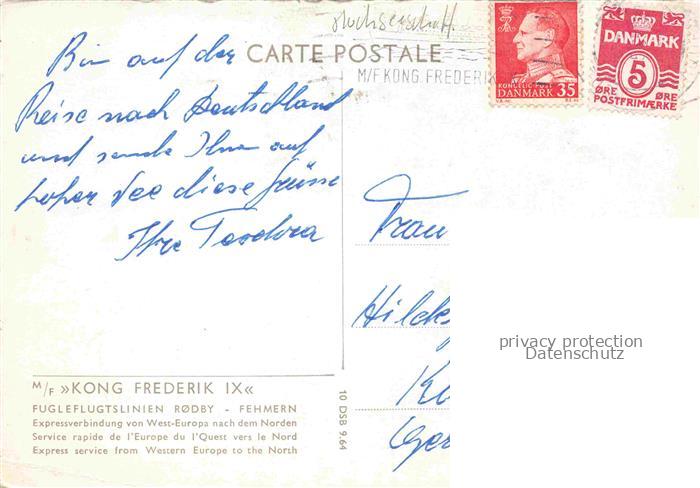 Hochseeschiff.
CARTE POSTALE
M/F KONG. FREDERIK
KONGELIG POST
DANMARK 35
DANMARK
5
ØRE ØRE
POSTFRIMÆRKE
Bin auf der
Reise nach Deutschland
und sende Ihnen auf
hoher See diese Grüsse
Ihre Teodora
Frau
Hilde
Ger
privacy protection
Datenschutz
M/F »KONG FREDERIK IX«
FUGLEFLUGTSLINIEN RØDBY - FEHMERN
Expressverbindung von West-Europa nach dem Norden
Service rapide de l'Europe du l'Quest vers le Nord
Express service from Western Europe to the North
10 DSB 9.64